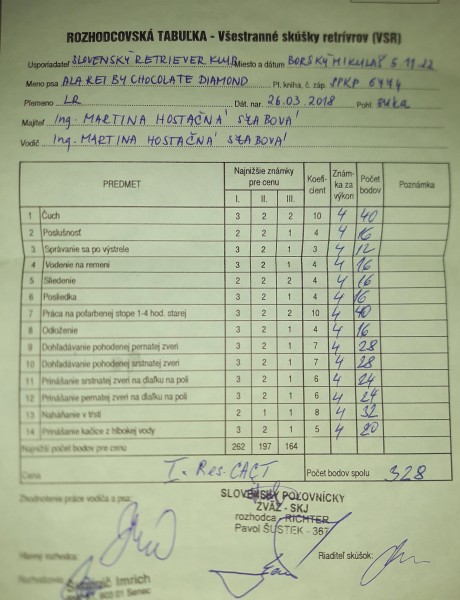 ROZHODCOVSKÁ TABUĽKA - Všestranné skúšky retrívrov (VSR)
Usporiadateľ SLOVENSKÝ RETRIEVER KLUB Miesto a dátum BORSKÝ MIKULÁŠ 5.11.22
Meno psa ALA REI BY CHOCOLATE DIAMOND Pl. kniha, č. záp. SPKP 6474
Plemeno LR Dát. nar. 26.03.2018 Pohl. suka
Majiteľ Ing. MARTINA HOSTAČNÁ SZABOVÁ
Vodič Ing. MARTINA HOSTAČNÁ SZABOVÁ
PREDMET Najnižšie známky pre cenu I. II. III. Koeficient Známka za výkon Počet bodov Poznámka
1 Čuch 3 2 2 10 4 40
2 Poslušnosť 2 2 1 4 4 16
3 Správanie sa po výstrele 3 2 1 3 4 12
4 Vodenie na remeni 3 2 1 4 4 16
5 Sliedenie 2 2 4 4 16
6 Postiedka 3 2 1 4 4 16
7 Práca na pofarbenej stope 1-4 hod. starej 3 2 2 10 4 40
8 Odloženie 3 2 1 4 4 16
9 Dohľadávanie pohodenej pernatej zveri 3 2 1 7 4 28
10 Dohľadávanie pohodenej srstnatej zveri 3 2 1 7 4 28
11 Prinášanie srstnatej zveri na diaľku na poli 3 2 1 6 4 24
12 Prinášanie pernatej zveri na diaľku na poli 3 2 1 6 4 24
13 Naháňanie v tŕstí 2 1 1 8 4 32
14 Prinášanie kačice z hlbokej vody 3 2 1 5 4 20
Najnižší počet bodov pre cenu 262 197 164
Cena I. Res. CACT Počet bodov spolu 328
Zhodnotenie práce vodiča a psa:
SLOVENSKÝ POĽOVNÍCKY
ZVÄZ - SKJ
rozhodca - RICHTER
Pavol ŠUSTEK - 367
Hlavný rozhodca:
Riaditeľ skúšok:
Rozhodcovia:
Imrich
903 01 Senec